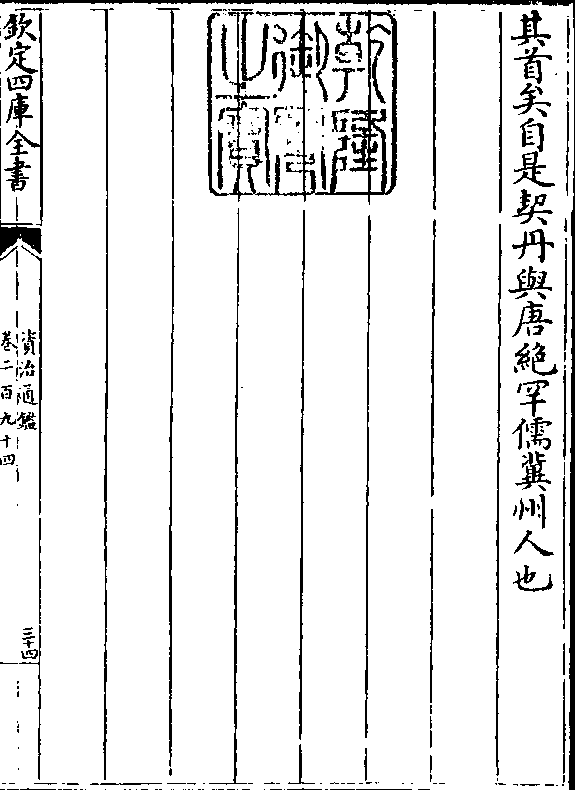 其首矣自是契丹與唐絕罕儒冀州人也
乾隆御覽之寶
欽定四庫全書
資治通鑑
卷二百九十四
三十四